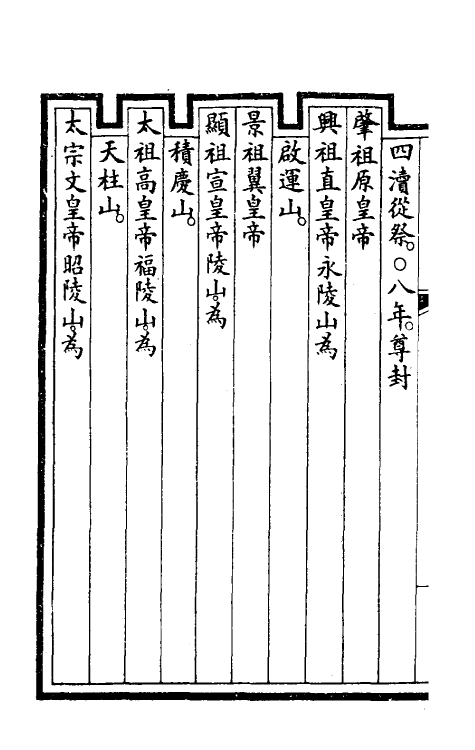 四瀆從祭。○八年。尊封
肇祖原皇帝
興祖直皇帝永陵山為
啟運山。
景祖翼皇帝
顯祖宣皇帝陵山。為
積慶山。
太祖高皇帝福陵山。為
天柱山。
太宗文皇帝昭陵山。為